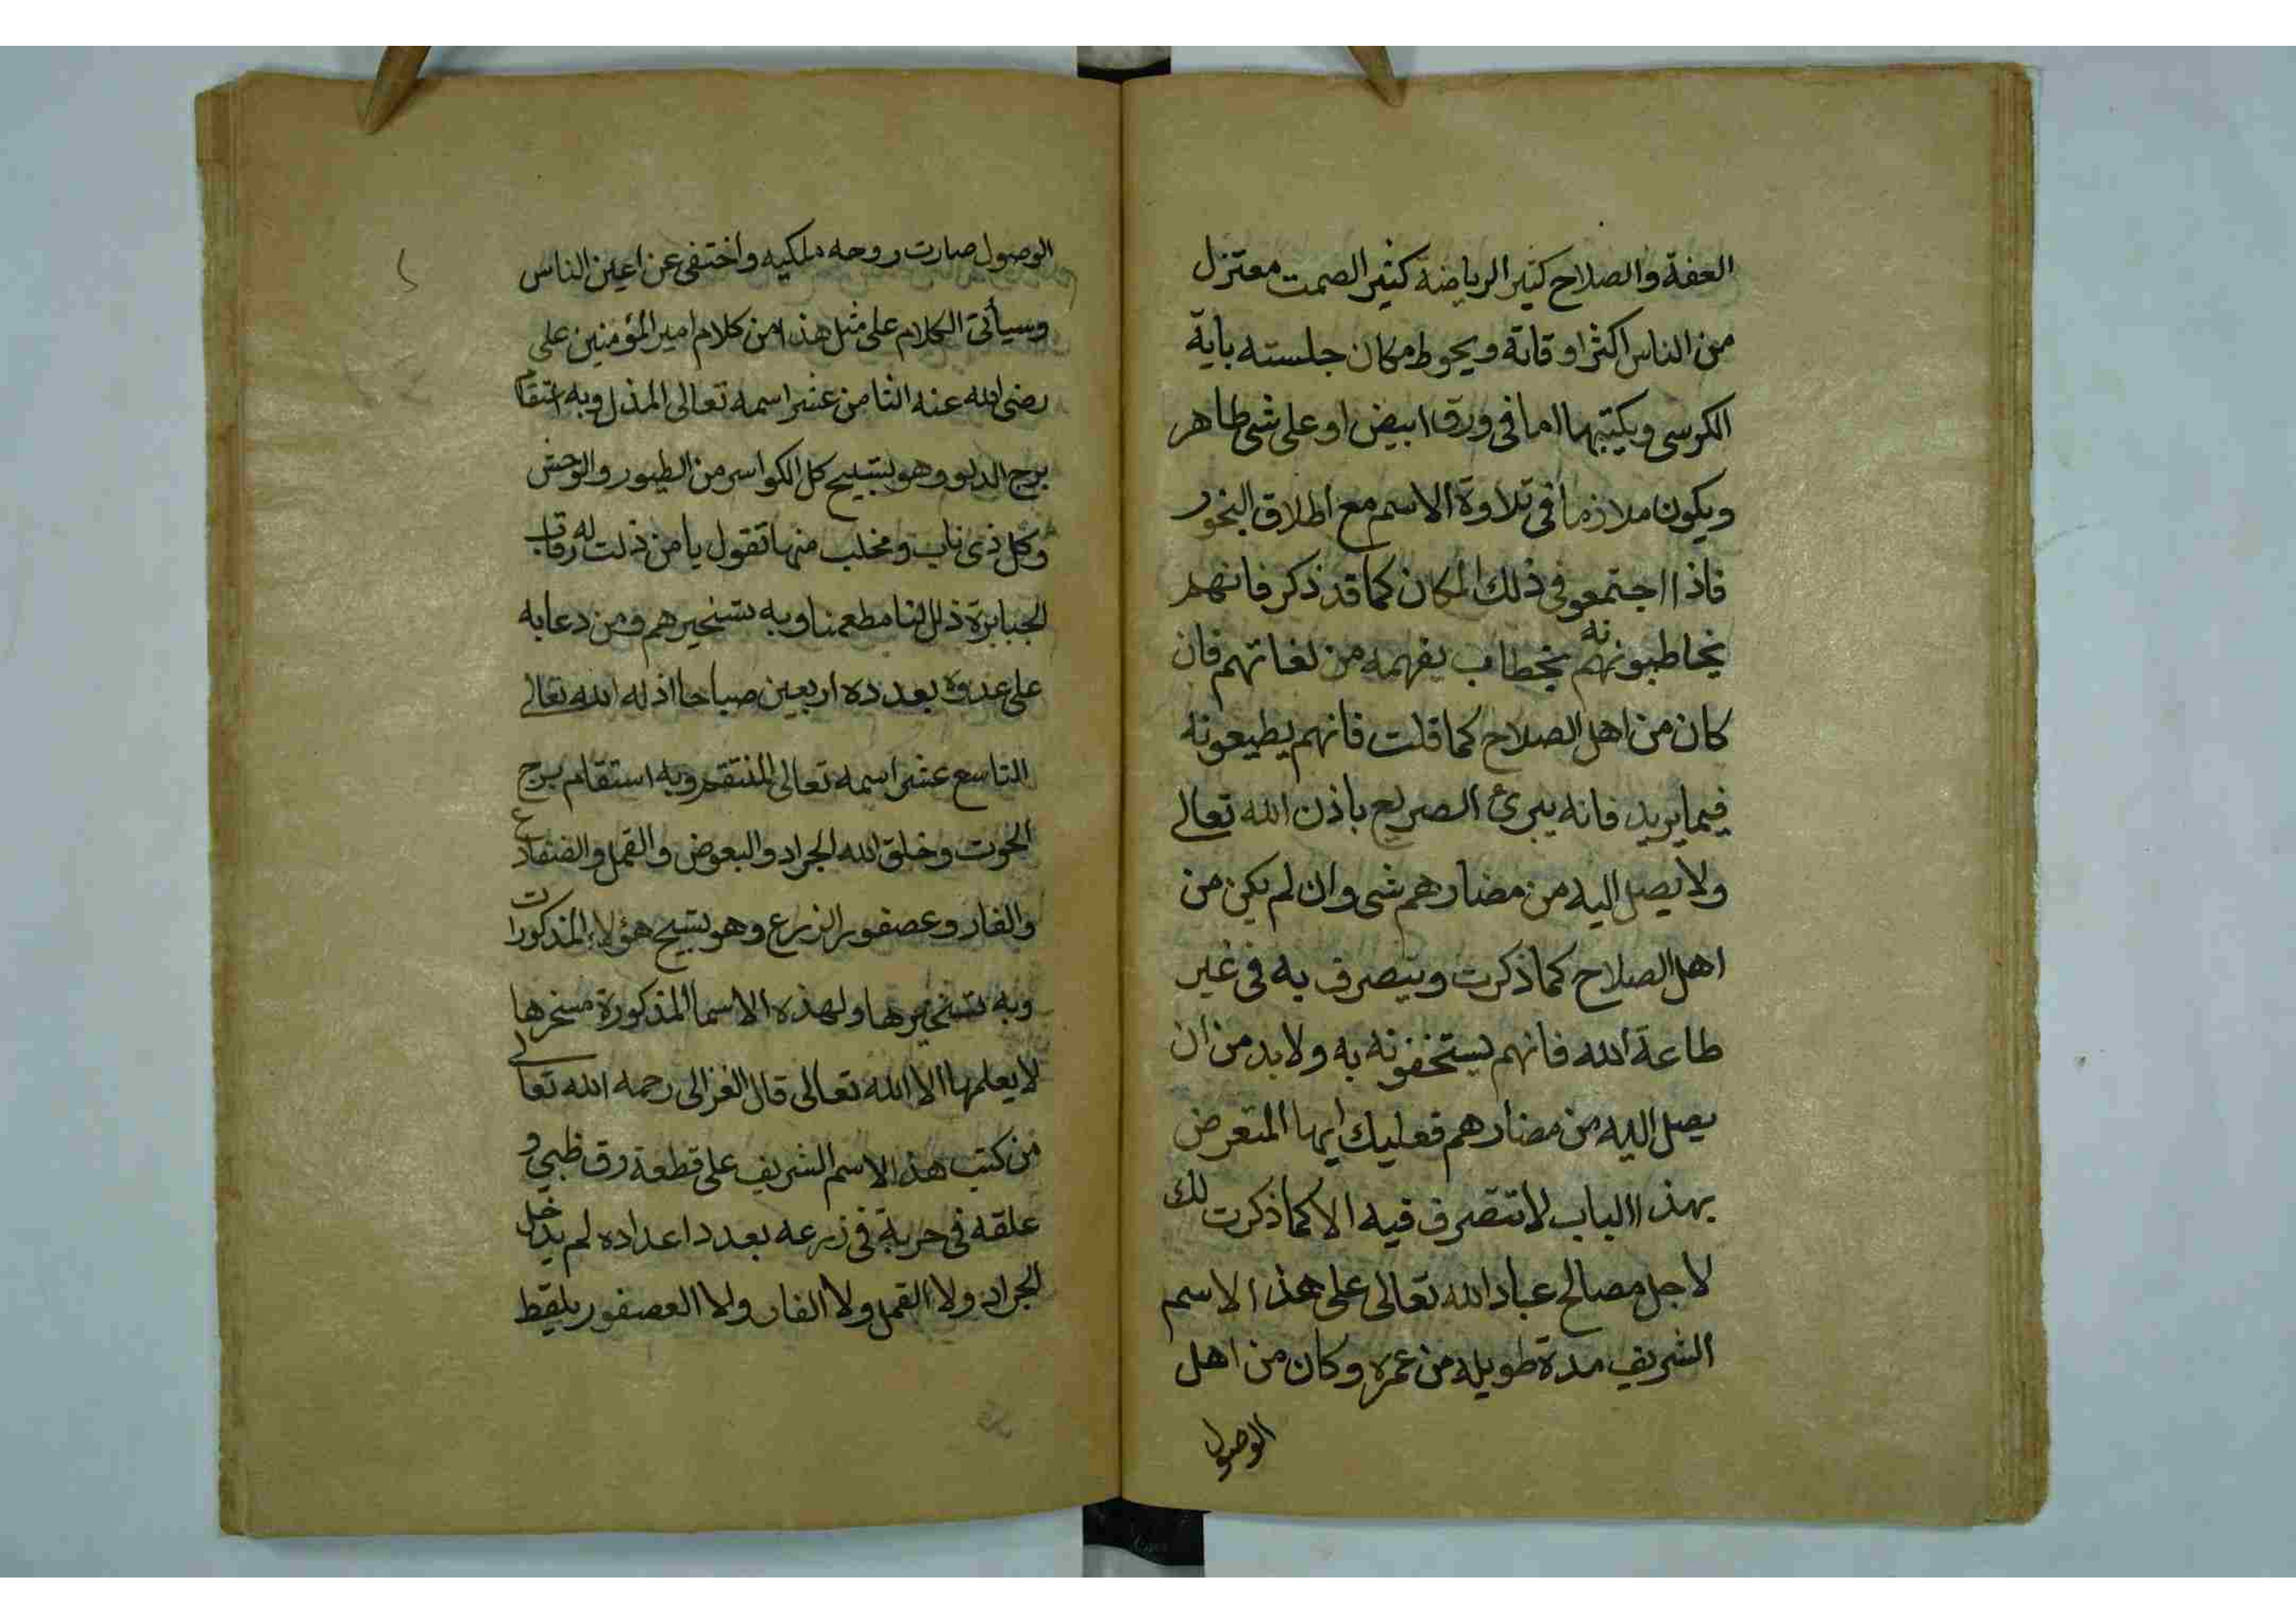 العفة والصلاح كثير الرياضة كثير الصمت معتزل
من الناس اكثر اوقاته ويحوط مكان جلسته بآية
الكرسي ويكتبها اما في ورق ابيض او على شى طاهر
ويكون ملازما في تلاوة الاسم مع اطلاق البخور
فاذا اجتمعو في ذلك المكان كما قد ذكر فانهم
يخاطبونه بخطاب يفهمه من لغاتهم فان
كان من اهل الصلاح كما قلت فانهم يطيعونه
فيما يريد فانه يبرئ الصريع باذن الله تعالى
ولا يصل اليه من مضارهم شى وان لم يكن من
اهل الصلاح كما ذكرت ويتصرف به في غير
طاعة الله فانهم يستخفونه به ولا بد من ان
يصل اليه من مضارهم فعليك ايها المتعرض
بهذا الباب لا تتصرف فيه الا كما ذكرت لك
لاجل مصالح عباد الله تعالى على هذا الاسم
الشريف مدة طويله من عمره وكان من اهل
الوصول
الوصول صارت روحه ملكيه واختفى عن اعين الناس
وسيأتى الكلام على مثل هذا من كلام امير المؤمنين على
رضى الله عنه الثامن عشر اسمه تعالى المذل وبه استقام
برج الدلو وهو تسبيح كل الكواسر من الطيور والوحش
وكل ذى ناب ومخلب منها تقول يا من ذلت له رقاب
الجبابرة ذلل لنا مطعمنا وبه تسخيرهم ومن دعا به
على عدوه بعدده اربعين صباحا اذله الله تعالى
التاسع عشر اسمه تعالى المنتقم وبه استقام برج
الحوت وخلق الله الجراد والبعوض والقمل والضفادع
والفار وعصفور الزرع وهو تسبيح هؤلاء المذكورات
وبه تسخيرها ولهذه الاسما المذكورة مسخرها
لا يعلمها الا الله تعالى قال الغزالى رحمه الله تعالى
من كتب هذا الاسم الشريف على قطعة رق ظبي و
علقه فى حربة فى زرعه بعدد اعداده لم يدخل
الجراد ولا القمل ولا الفار ولا العصفور يلقط